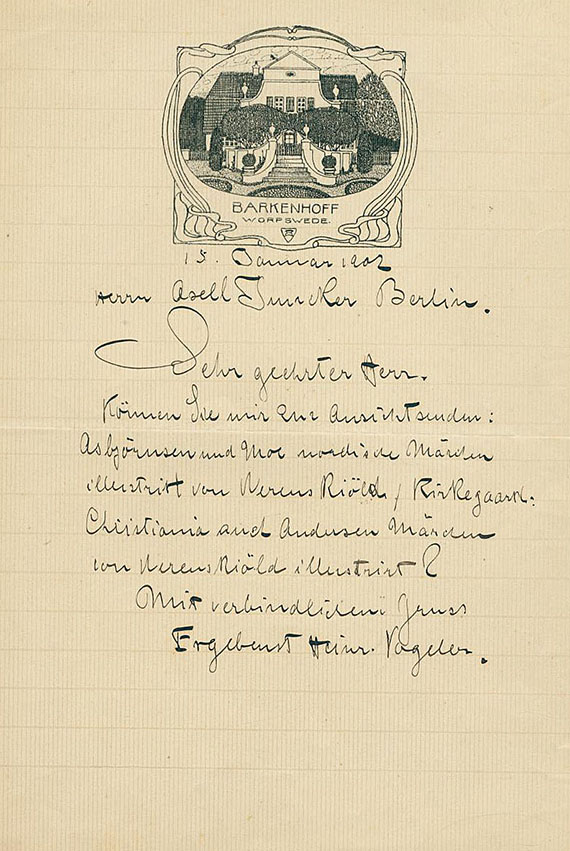 BARKENHOFF
WORPSWEDE.
15. Januar 1902
Herrn Axell Juncker Berlin.
Sehr geehrter Herr.
Können Sie mir zur Ansicht senden:
Asbjörnsen und Moe nordische Märchen
illustrirt von Werenskiöld / Kirkegaard:
Christiania und Andersen Märchen
von Werenskiöld illustrirt?
Mit verbindlichem Gruss
Ergebenst Heinr. Vogeler.